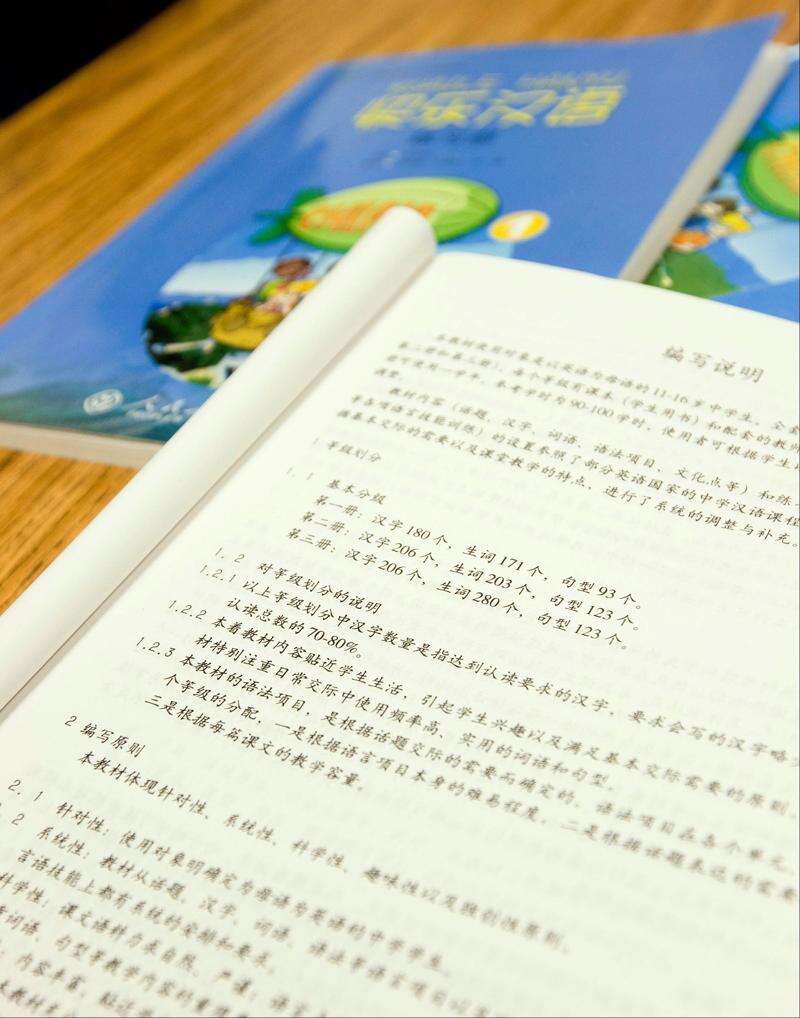 汉语
1
编写说明
本教材使用对象是以英语为母语的11-16岁中学生。全套
第二册和第三册），每个等级有课本（学生用书）和配套的教师
册可使用一学年，参考学时为90-100学时，使用者可根据学生
调整。
教材内容（话题、汉字、词语、语法项目、文化点等）和练
等各项语言技能训练）的设置参照了部分英语国家的中学汉语课程
据基本交际的需要以及课堂教学的特点，进行了系统的调整与补充。
1 等级划分
1.1 基本分级
第一册：汉字180个，生词171个，句型93个。
第二册：汉字206个，生词203个，句型123个。
第三册：汉字206个，生词280个，句型123个。
1.2 对等级划分的说明
1.2.1 以上等级划分中汉字数量是指达到认读要求的汉字，要求会写的汉字略少
认读总数的70-80%。
1.2.2 本着教材内容贴近学生生活，引起学生兴趣以及满足基本交际需要的原则，
材特别注重日常交际中使用频率高、实用的词语和句型。
1.2.3 本教材的语法项目，是根据话题交际的需要而确定的，语法项目在各个单元、
个等级的分配，一是根据语言项目本身的难易程度，二是根据话题表达的需要
三是根据每篇课文的教学容量。
2 编写原则
本教材体现针对性、系统性、科学性、趣味性以及独创性原则。
2.1 针对性：使用对象明确定为母语为英语的中学学生。
2 系统性：教材从话题、汉字、词语、语法等语言项目
言语技能上都有系统的安排和要求。
科学性：课文语料力求自然、严谨；语言
词语、句型等教学内容的重现
内容丰富，贴近
本教材